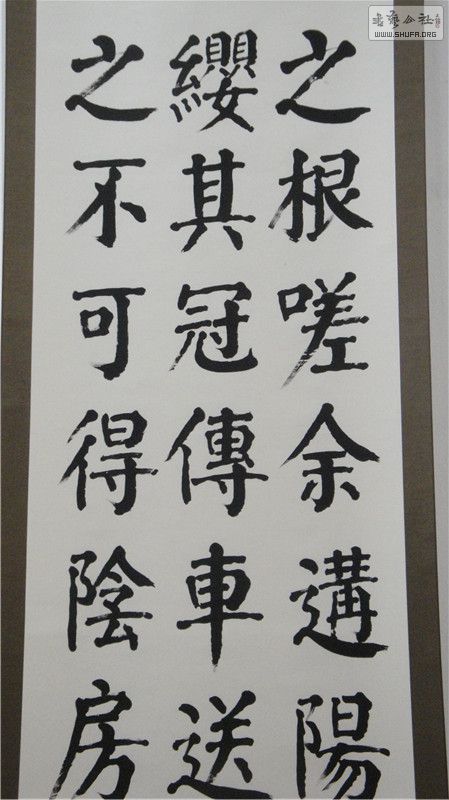 之根嗟余遘陽
纓其冠傳車送
之不可得陰房
書藝公社
WWW.SHUFA.ORG